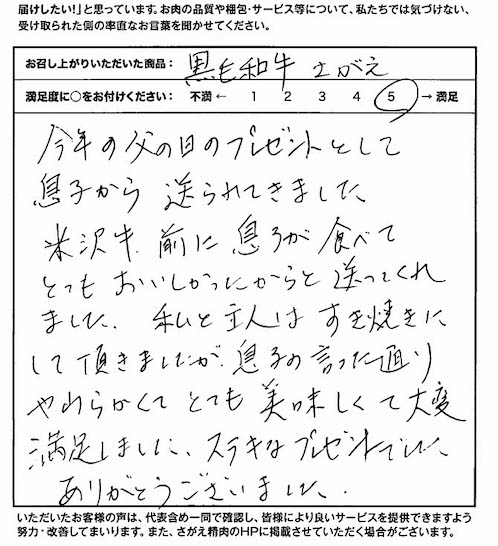 届けしたい！」と思っています。お肉の品質や梱包・サービス等について、私たちでは気づけない、
受け取られた側の率直なお言葉を聞かせてください。
お召し上がりいただいた商品： 黒毛和牛 さがえ
満足度に○をお付けください： 不満 ← 1 2 3 4 5 → 満足
今年の父の日のプレゼントとして
息子から 送られてきました、
米沢牛、前に 息子が 食べて
とても おいしかったからと 送ってくれ
ました、 私と主人は すき焼きに
して 頂きましたが、息子の言った通り
やわらかくて とても 美味しくて 大変
満足しました、ステキな プレゼントでした、
ありがとうございました、
いただいたお客様の声は、代表含め一同で確認し、皆様により良いサービスを提供できますよう
努力・改善してまいります。また、さがえ精肉のHPに掲載させていただく場合がございます。